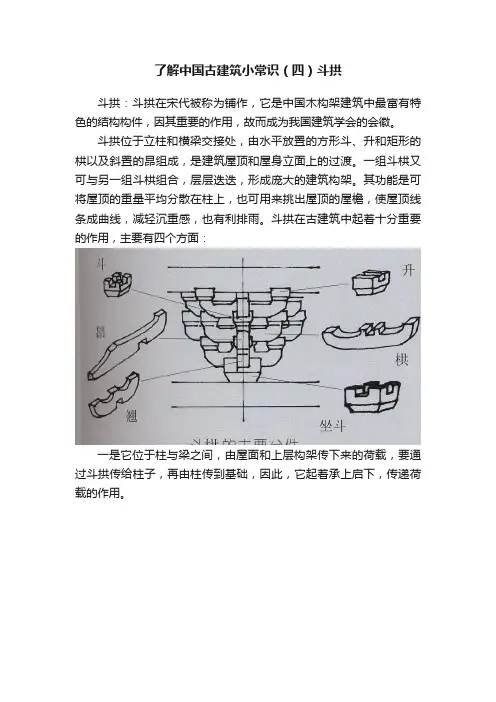 了解中国古建筑小常识（四）斗拱
斗拱：斗拱在宋代被称为铺作，它是中国木构架建筑中最富有特
色的结构构件，因其重要的作用，故而成为我国建筑学会的会徽。
斗拱位于立柱和横梁交接处，由水平放置的方形斗、升和矩形的
栱以及斜置的昂组成，是建筑屋顶和屋身立面上的过渡。一组斗栱又
可与另一组斗栱组合，层层迭迭，形成庞大的建筑构架。其功能是可
将屋顶的重量平均分散在柱上，也可用来挑出屋顶的屋檐，使屋顶线
条成曲线，减轻沉重感，也有利排雨。斗拱在古建筑中起着十分重要
的作用，主要有四个方面：
斗
升
昂
栱
翘
坐斗
斗拱的主要分件
一是它位于柱与梁之间，由屋面和上层构架传下来的荷载，要通
过斗拱传给柱子，再由柱传到基础，因此，它起着承上启下，传递荷
载的作用。